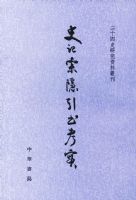 二十四史研究資料叢刊
史記索隱引書考實
中華書局